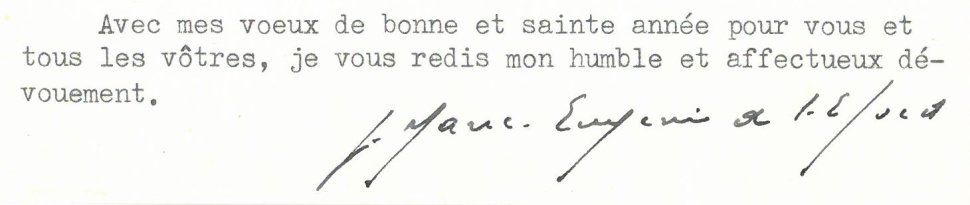 Avec mes voeux de bonne et sainte année pour vous et
tous les vôtres, je vous redis mon humble et affectueux dé-
vouement.
f. Marie-Eugène de l'E. J. ocd